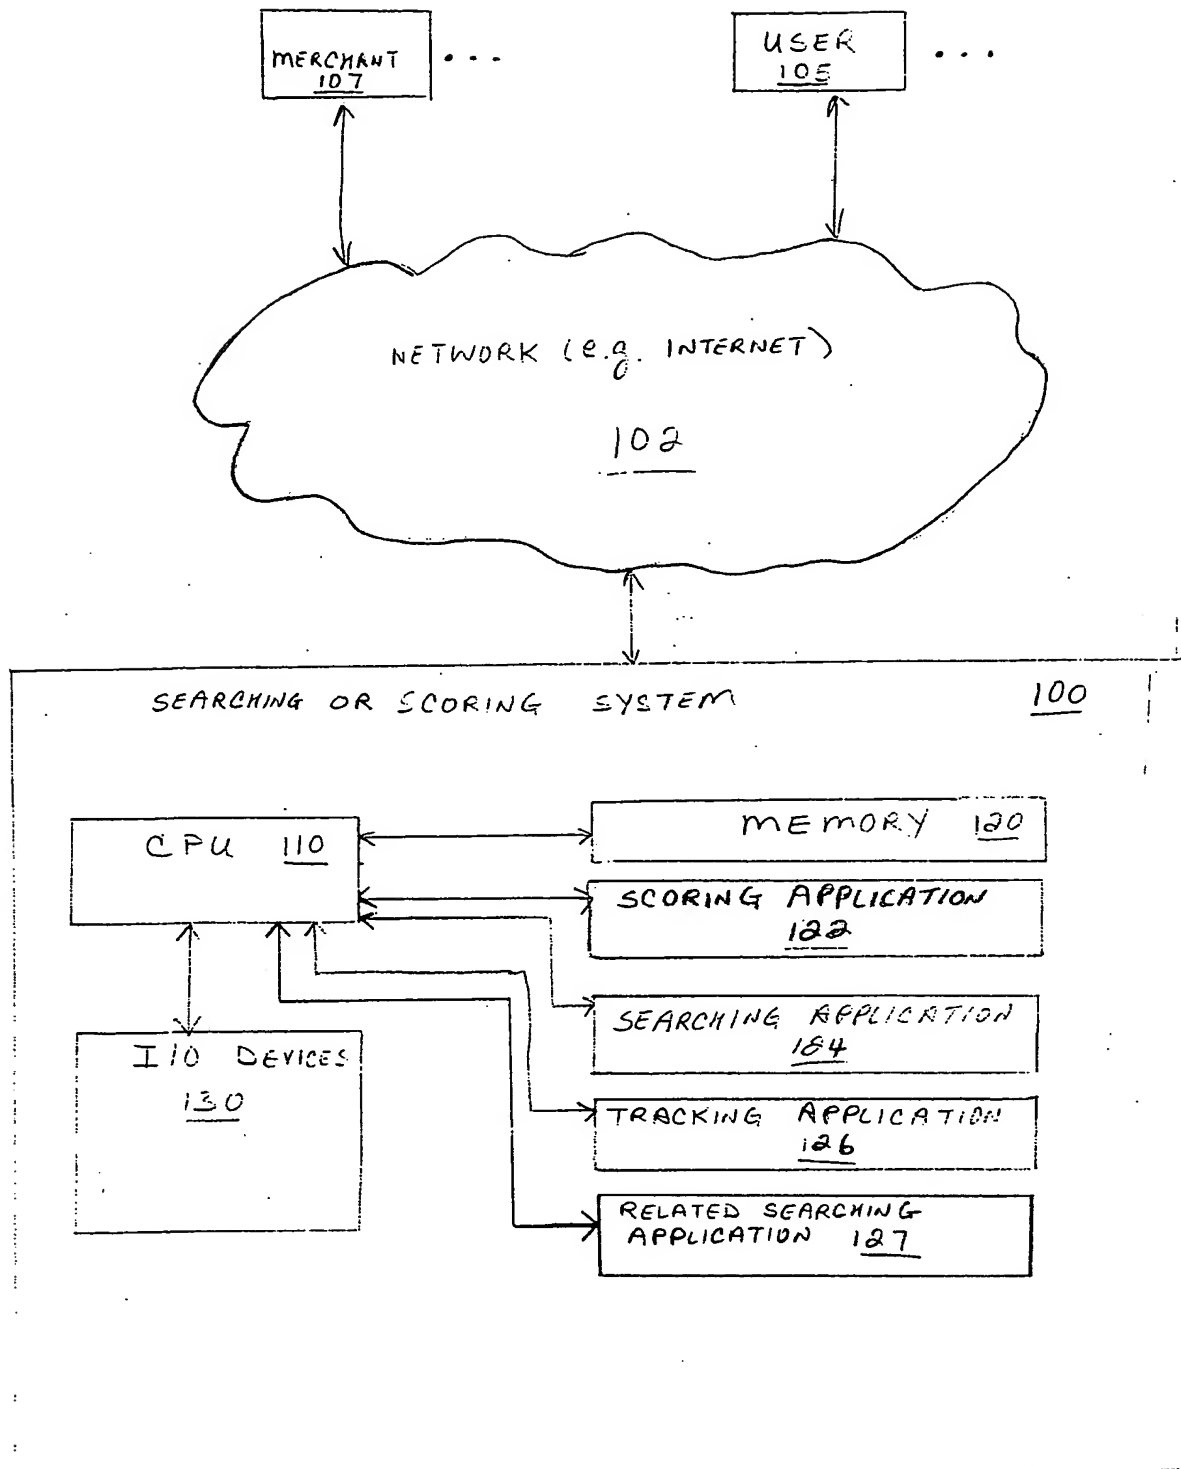 MERCHANT
107
. . .
USER
105
. . .
NETWORK (e.g. INTERNET)
102
SEARCHING OR SCORING SYSTEM 100
CPU 110
MEMORY 120
SCORING APPLICATION
122
SEARCHING APPLICATION
124
I/O DEVICES
130
TRACKING APPLICATION
126
RELATED SEARCHING
APPLICATION 127